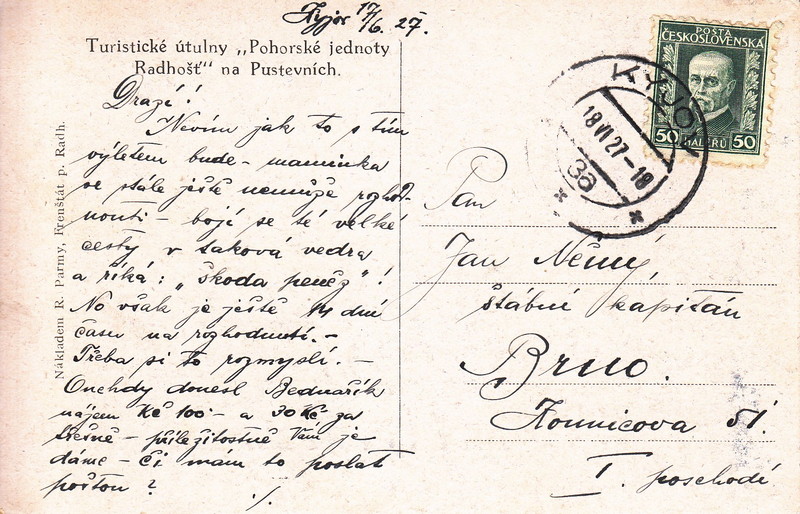 Kyjov 17/6. 27.
Turistické útulny „Pohorské jednoty
Radhošť" na Pustevních.
Drazí!
Nevím jak to s tím
výletem bude - maminka
se stále ještě nemůže rozhod-
nouti - bojí se té velké
cesty v taková vedra
a říká: „škoda peněz"!
No však je ještě 14 dní
času na rozhodnutí. -
Třeba si to rozmyslí. -
Onehdy donesl Bednařík
nájem Kč 100·- a 30 Kč za
třešně - příležitostně Vám je
dáme - či mám to poslat
poštou?
./.
Nákladem R. Parmy, Frenštát p. Radh.
POŠTA
ČESKOSLOVENSKÁ
50 HALÉŘŮ 50
KYJOV
18 VI 27-18
3a
Pan
Jan Němý,
štábní kapitán
Brno.
Kounicova 51.
I. poschodí